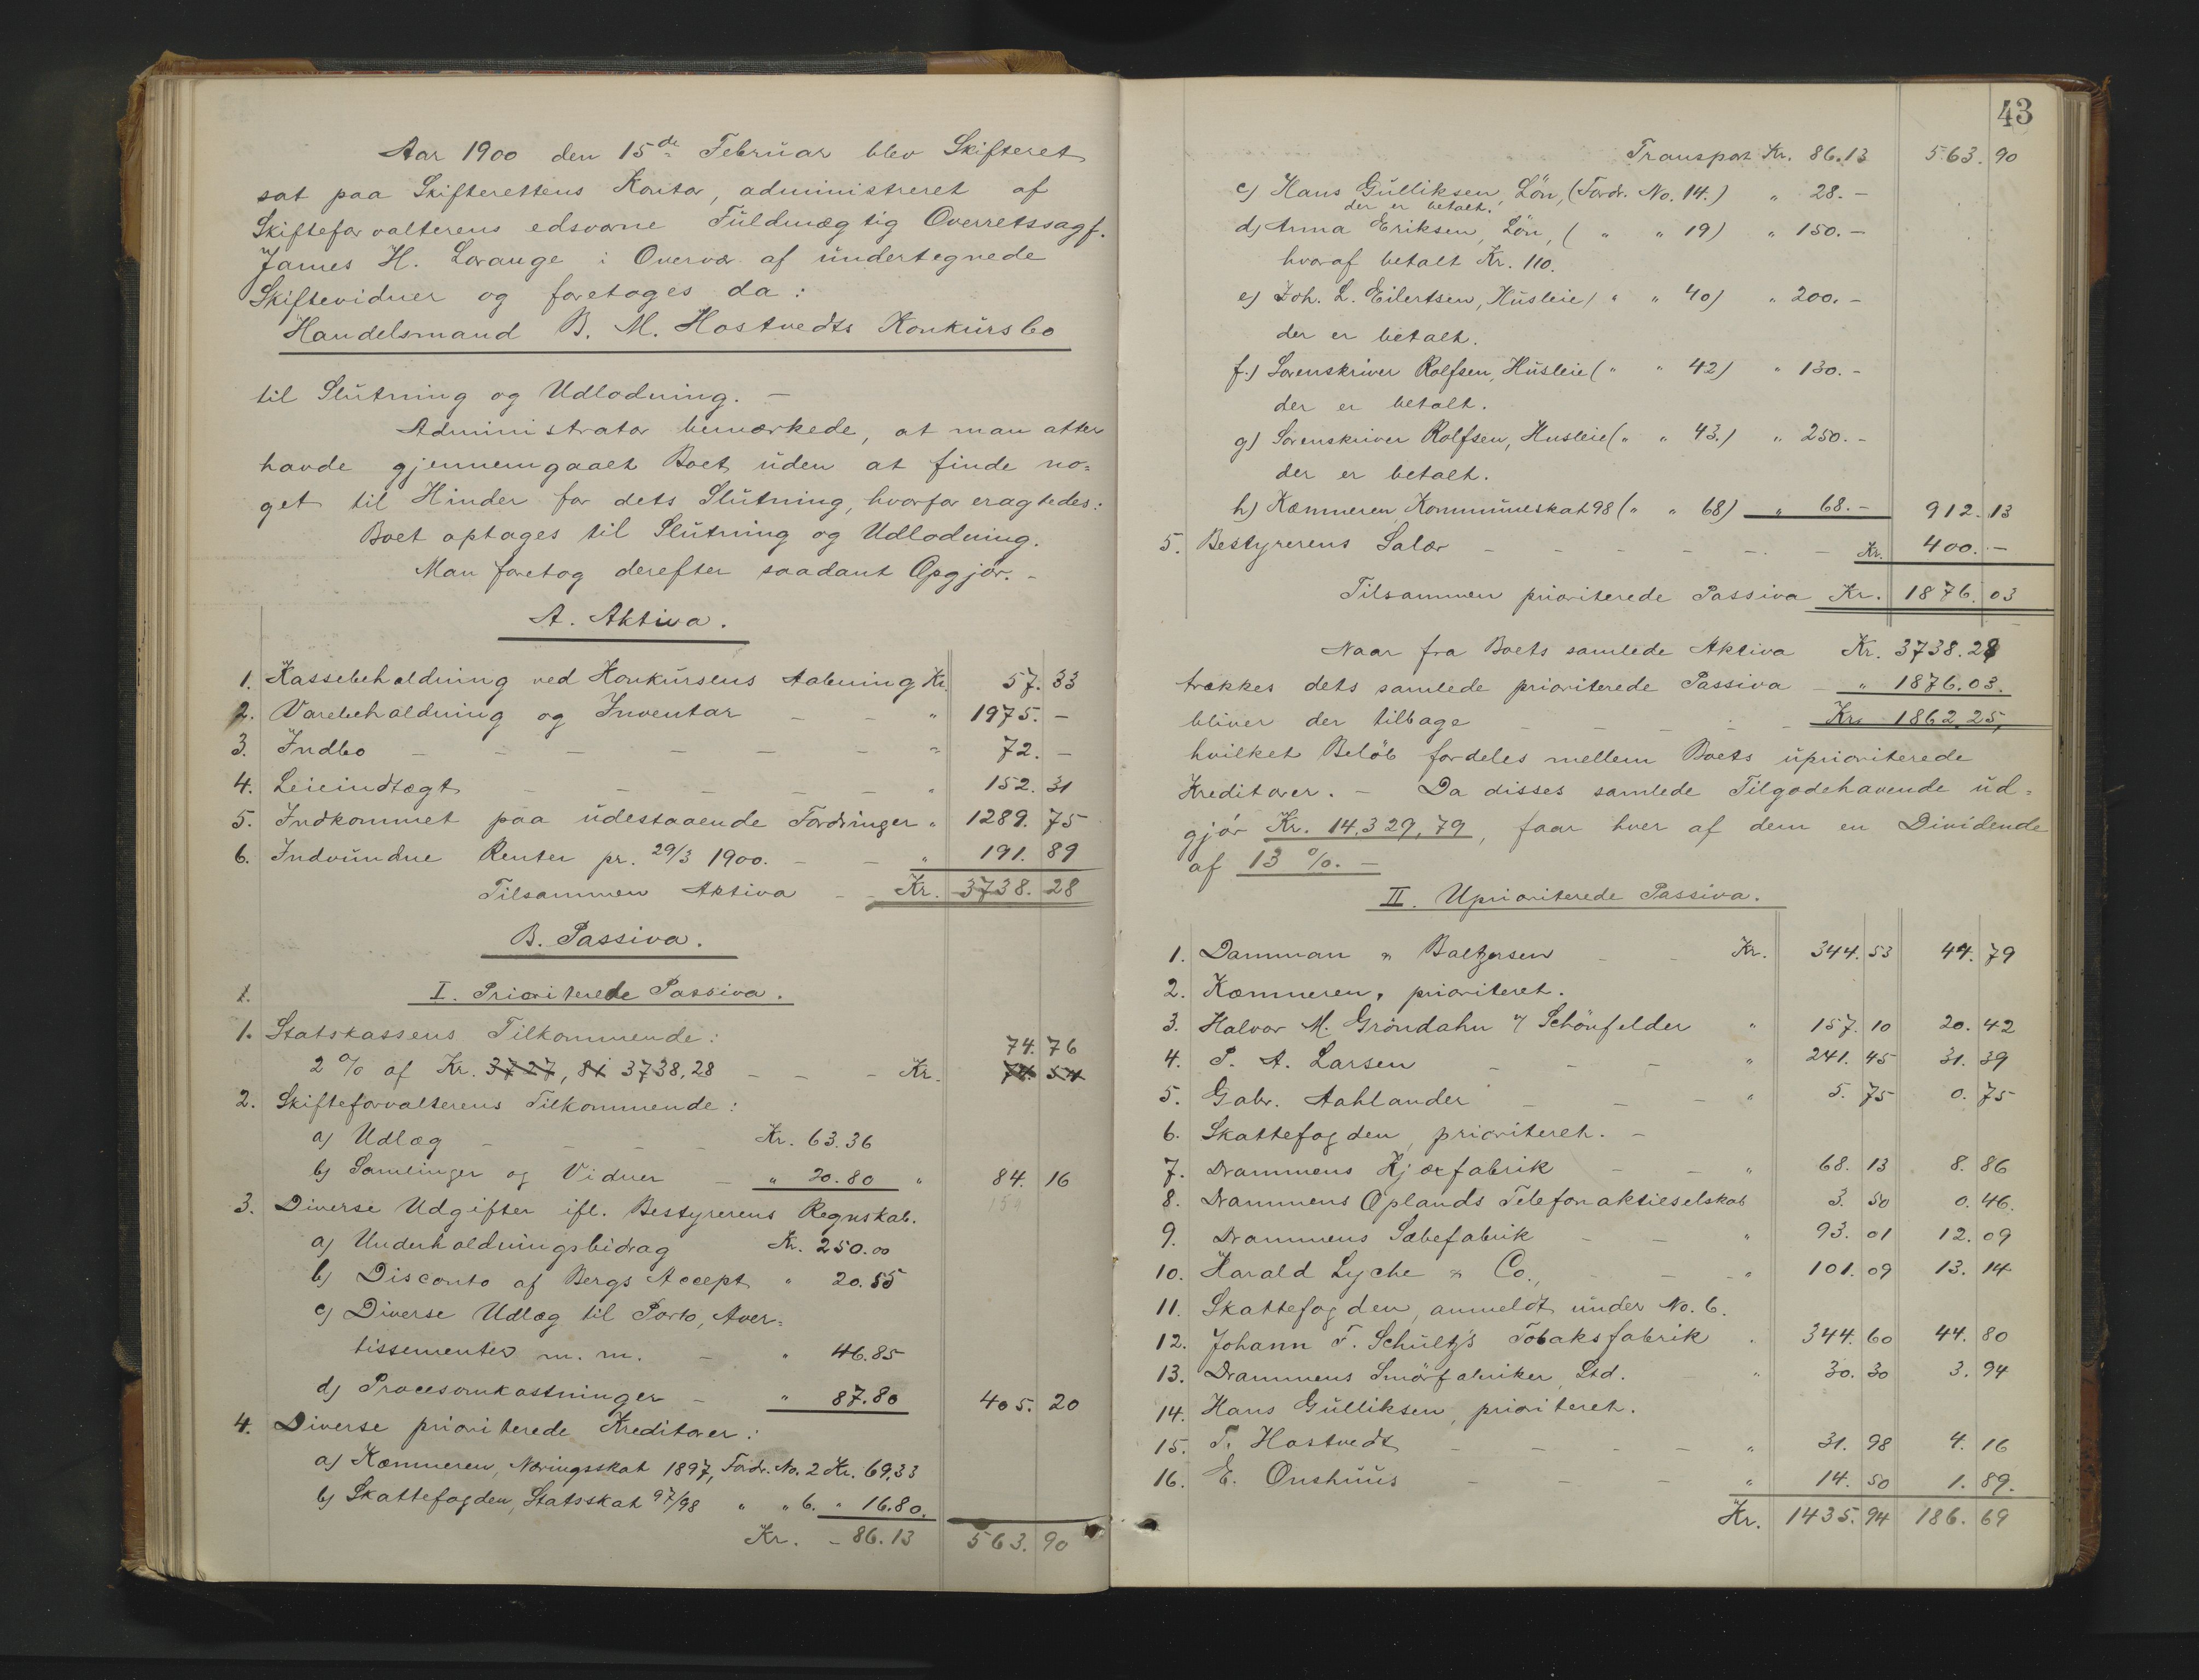 Aar 1900 den 15de Februar blev Skifteret
sat paa Skifterettens Kontor, administreret af
Skifteforvalterens edsvorne Fuldmægtig Overretssagf.
James H. Lorange i Overvær af undertegnede
Skiftevidner og foretoges da:
Handelsmand B. M. Hostvedts Konkursbo
til Slutning og Udlodning. –
Administrator bemærkede, at man atter
havde gjennemgaaet Boet uden at finde no=
get til Hinder for dets Slutning, hvorfor eragtedes:
Boet optages til Slutning og Udlodning.
Man foretog derefter saadant Opgjør. –
A. Aktiva.
1. Kassebeholdning ved Konkursens Aabning Kr. 57. 33
2. Varebeholdning og Inventar – – " 1975. –
3. Indbo – – – – – – " 72. –
4. Leieindtægt – – – – – " 152. 31
5. Indkommet paa udestaaende Fordringer " 1289. 75
6. Indvundne Renter pr. 29/3 1900. – – " 191. 89
Tilsammen Aktiva – – Kr. 3738. 28
B. Passiva.
1. I. Prioriterede Passiva.
1. Statskassens Tilkommende: 74. 76
2 % af Kr. 3727, 81 3738,28 – – – Kr. 74. 54
2. Skifteforvalterens Tilkommende:
a) Udlæg – – – – Kr. 63.36
b) Samlinger og Vidner – " 20.80 " 84. 16
3. Diverse Udgifter ifl. Bestyrerens Regnskab. 159
a) Underholdningsbidrag Kr. 250.00
b) Disconto af Bergs Accept " 20.55
c) Diverse Udlæg til Porto, Aver=
tissementer m. m. – " 46.85
d) Procesomkostninger – " 87.80 405. 20
4. Diverse prioriterede Kreditorer:
a) Kæmneren, Næringsskat 1897, Fordr. No. 2 Kr. 69.33
b) Skattefogden, Statsskat 97/98 " " 6. " 16.80.
Kr. – 86.13 563. 90
43
Transport Kr. 86.13 563. 90
c) Hans Gulliksen, Lön, (Fordr. No. 14.) " 28. –
der er betalt.
d) Anna Eriksen, Lön, ( " " 19) " 150. –
hvoraf betalt Kr. 110.
e) Joh. L. Eilertsen, Husleie ( " " 40) " 200. –
der er betalt.
f.) Sorenskriver Rolfsen, Husleie ( " " 42) " 130. –
der er betalt.
g) Sorenskriver Rolfsen, Husleie ( " " 43.) " 250. –
der er betalt.
h) Kæmneren Kommuneskat 98 ( " " 68) " 68. – 912. 13
5. Bestyrerens Salær – – – – – – Kr. 400. –
Tilsammen prioriterede Passiva Kr. 1876. 03
Naar fra Boets samlede Aktiva Kr. 3738.28
trækkes dets samlede prioriterede Passiva – " 1876.03.
bliver der tilbage – – – – Kr. 1862.25,
hvilket Beløb fordeles mellem Boets uprioriterede
Kreditorer. – Da disses samlede Tilgodehavende ud=
gjør Kr. 14,329,79, faar hver af dem en Dividende
af 13 %. –
II. Uprioriterede Passiva.
1. Damman & Baltzersen – – Kr. 344. 53 44. 79
2. Kæmneren, prioriteret.
3. Halvor M. Gröndahn % Schönfelder " 157. 10 20. 42
4. P. A. Larsen – – – " 241. 45 31. 39
5. Gabr. Aahlander – – – " 5. 75 0. 75
6. Skattefogden, prioriteret. –
7. Drammens Kjæxfabrik – – " 68. 13 8. 86
8. Drammens Oplands Telefonaktieselskab 3. 50 0. 46.
9. Drammens Sæbefabrik – – " 93. 01 12. 09
10. Harald Lyche & Co., – – – " 101. 09 13. 14
11. Skattefogden, anmeldt under No. 6.
12. Johann F. Schultz's Tobaksfabrik " 344. 60 44. 80
13. Drammens Smörfabriker, Ltd. – " 30. 30 3. 94
14. Hans Gulliksen, prioriteret.
15. T. Hostvedt – – – – " 31. 98 4. 16
16. E. Onshuus – – – " 14. 50 1. 89.
Kr. 1435. 94 186. 69